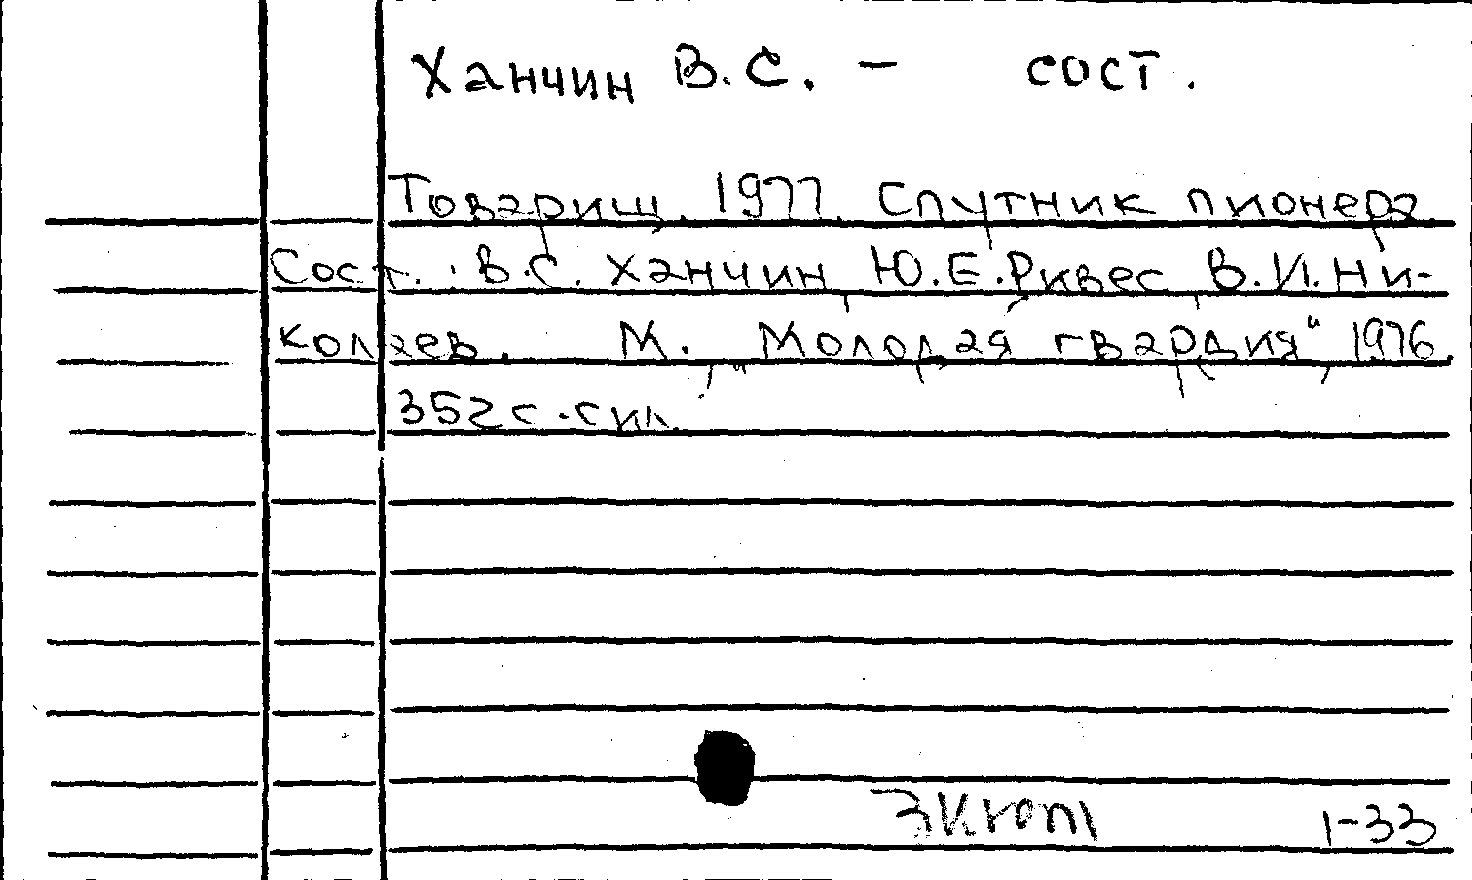 Ханчин В.С. - сост.
Товарищ. 1977. Спутник пионера.
Сост.: В.С. Ханчин, Ю.Е. Ривес, В.И. Ни-
колаев. М. „Молодая гвардия“, 1976.
352 с. с ил.
1-33